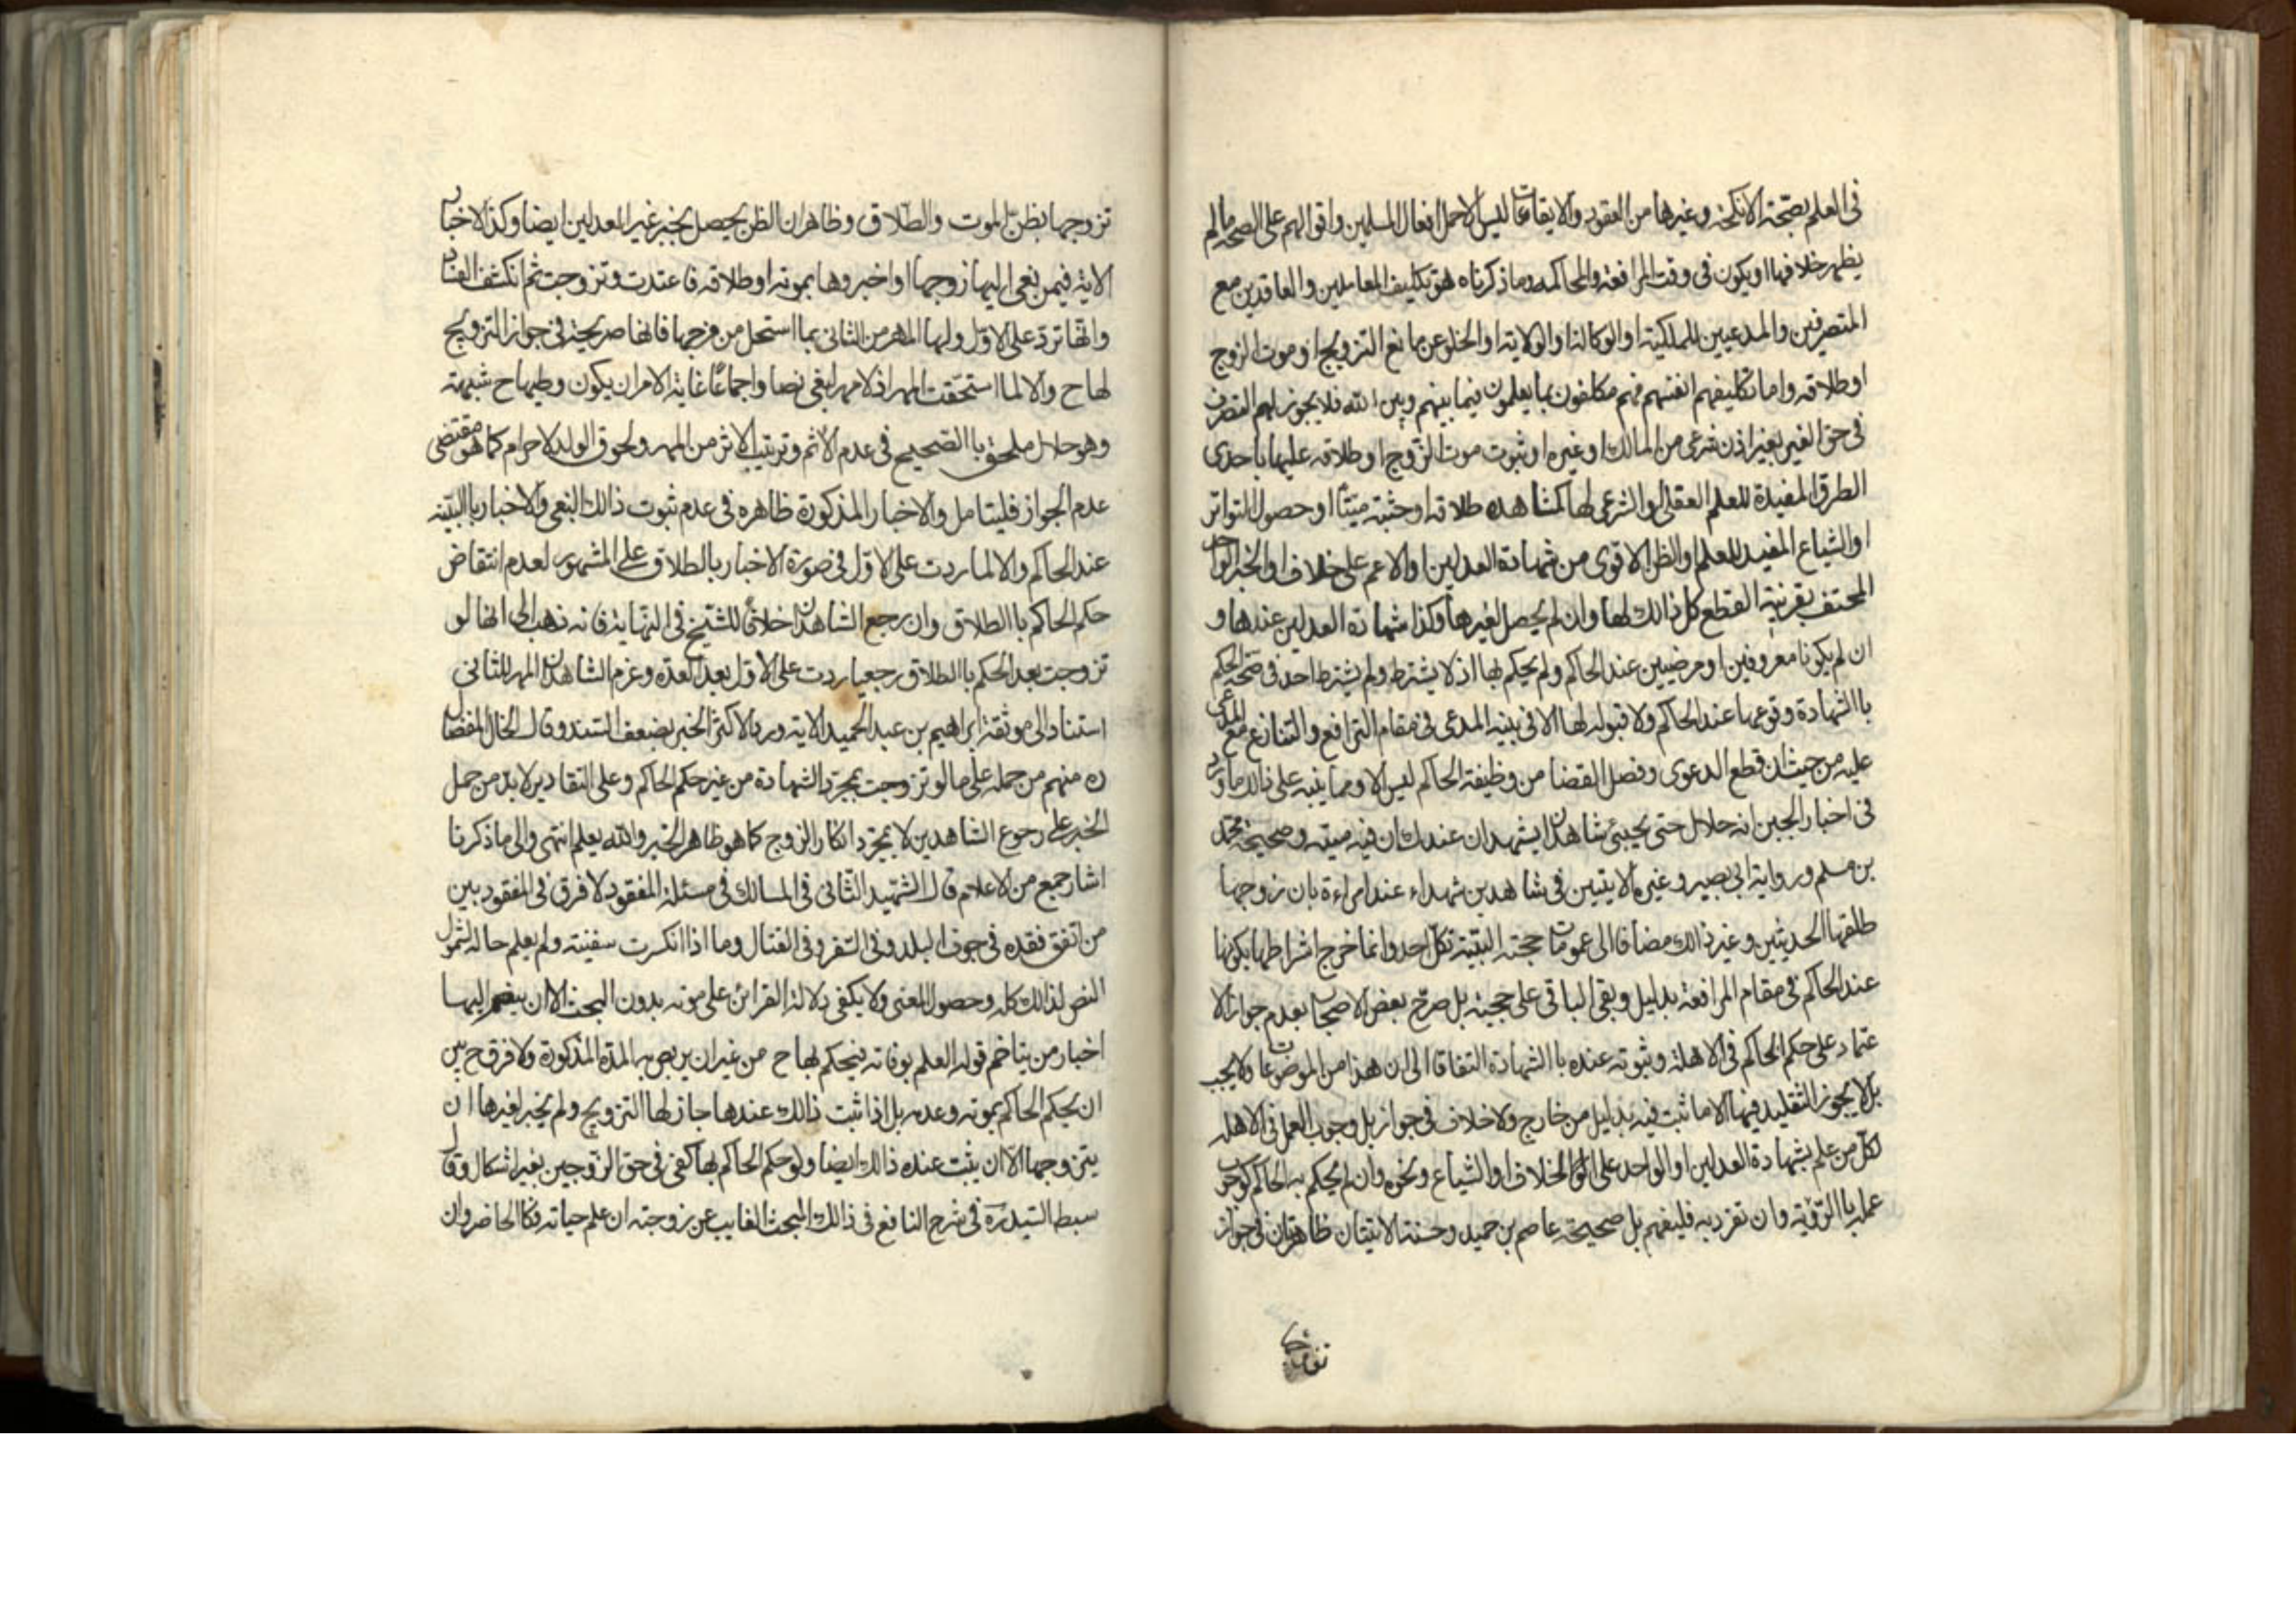 فى العلم بصحة الانكحة وغيرها من العقود والايقاعات ليس الا حمل افعال المسلمين واقوالهم على الصحة مالم
يظهر خلافها او يكون فى وقت المرافعة والمحاكمه وما ذكرناه هو تكليف المعاملين والعاقدين مع
المتصرفين والمدعيين للملكية او الوكالة او الولاية او الخلو عن مانع التزويج او موت الزوج
او طلاقه واما تكليفهم انفسهم فهم مكلفون بما يعلمون فيما بينهم وبين الله فلا يجوز لهم التصرف
فى حق الغير بغير اذن شرعى من المالك او غيره او ثبوت موت الزوج او طلاقه عليها باحدى
الطرق المفيدة للعلم العقلى او الشرعى لها كمشاهده طلاقه او جثته ميتا او حصول التواتر
او الشياع المفيد للعلم او الظن الاقوى من شهادة العدلين او الاعم على خلاف او الخبر الواحد
المحتف بقرنية القطع كل ذالك لها وان لم يحصل لغيرها وكذا شهادة العدلين عندها و
ان لم يكونا معروفين او مرضيين عند الحاكم ولم يحكم بها اذ لا يشترط ولم يشترط احد فى صحة الحكم
باالشهادة وقوعها عند الحاكم ولا قبوله لها الا فى بنيه المدعى فى مقام الترافع والتنازع مع المدعى
عليه من حيث ان قطع الدعوى وفصل القضا من وظيفة الحاكم ليس الا ومما ينبه على ذالك ما ورد
فى اخبار الجبن انه حلال حتى يجيئ شاهدان يشهدان عندك ان فيه ميته وصحيحة محمد
بن مسلم ورواية ابى بصير وغيره الايتين فى شاهدين شهداء عند امراءة بان زوجها
طلقها الحديثين وغير ذالك مضافا الى عمومات حجته البنية لكل احد وانما خرج اشراطها بكونها
عند الحاكم فى مقام المرافعة بدليل وبقى الباقى على حجيته بل صرح بعض الاصحاب بعدم جواز الا
عتماد على حكم الحاكم فى الاهلة وثبوته عنده باالشهادة التفاقا الى ان هذا من الموضوعات ولا يجب
بل لا يجوز التقليد فيها الا ما ثبت فيه بدليل من خارج ولا خلاف فى جواز بل وجوب العمل فى الاهله
لكل من علم بشهادة العدلين او الواحد على الخلاف او الشياع ونحوه وان لم يحكم به الحاكم كوجوب
عمله باالرؤيه وان تفرد به فليفهم بل صحيحة عاصم بن حميد وحسنة الايتان ظاهرتان فى جواز
تزوجها
تزوجها بظن الموت والطلاق وظاهر ان الظن يحصل بخبر غير العدلين ايضا وكذا الاخبار
الاتية فيمن نعى اليها زوجها او اخبروها بموته او طلاقه فاعتدت وتزوجت ثم انكشف الفساد
وانها ترد على الاول ولها المهر من الثانى بما استحل من فرجها فانها صريحة فى جواز التزويج
لها ح والا لما استحقت المهر اذ لا مهر لبغى نصا واجماعا غاية الامر ان يكون وطيها ح شبهة
وهو حلال ملحق باالصحيح فى عدم الاثم وترتب الاثر من المهر ولحوق الولد لا حرام كما هو مقتضى
عدم الجواز فليتامل والاخبار المذكورة ظاهره فى عدم ثبوت ذالك النعى والاخبار باالبينه
عند الحاكم والا لما ردت على الاول فى صورة الاخبار بالطلاق على المشهور لعدم انتقاض
حكم الحاكم باالطلاق وان رجع الشاهدان خلافا للشيخ فى النهاية فانه ذهب الى انها لو
تزوجت بعد الحكم باالطلاق رجعيا ردت على الاول بعد العده وغرم الشاهدان المهر للثانى
استنادا لى موثقة ابراهيم بن عبد الحميد الاتية ورد الاكثر الخبر بضعف السند وقال الخال المفضال
ره منهم من حمله على ما لو تزوجت بمجرد الشهادة من غير حكم الحاكم وعلى التقادير لا بد من حمل
الخبر على رجوع الشاهدين لا بمجرد انكار الزوج كما هو ظاهر الخبر والله يعلم انتهى والى ما ذكرنا
اشار جمع من الاعلام قال الشهيد الثانى فى المسالك فى مسئلة المفقود لا فرق فى المفقود بين
من اتفق فقده فى جوف البلد وفى السفر وفى القتال وما اذا انكسرت سفنيته ولم يعلم حاله لشمول
النص لذالك كله وحصول المعنى ولا يكفى دلالة القرائن على موته بدون البحث الا ان ينضم اليها
اخبار من يتاخم قوله العلم بوفاته فيحكم بها ح من غير ان يربص به المدة المذكورة ولا فرق ح بين
ان يحكم الحاكم بموته وعدمه بل اذا ثبت ذالك عندها جاز لها التزويج ولم يخبر لغيرها ان
يتزوجها الا ان يثبت عنده ذالك ايضا ولو حكم الحاكم بها كفى فى حق الزوجين بغير اشكال وقال
سبط السيد ره فى شرح النافع فى ذالك المبحث الغايب عن زوجته ان علم حياته فكالحاضر وان